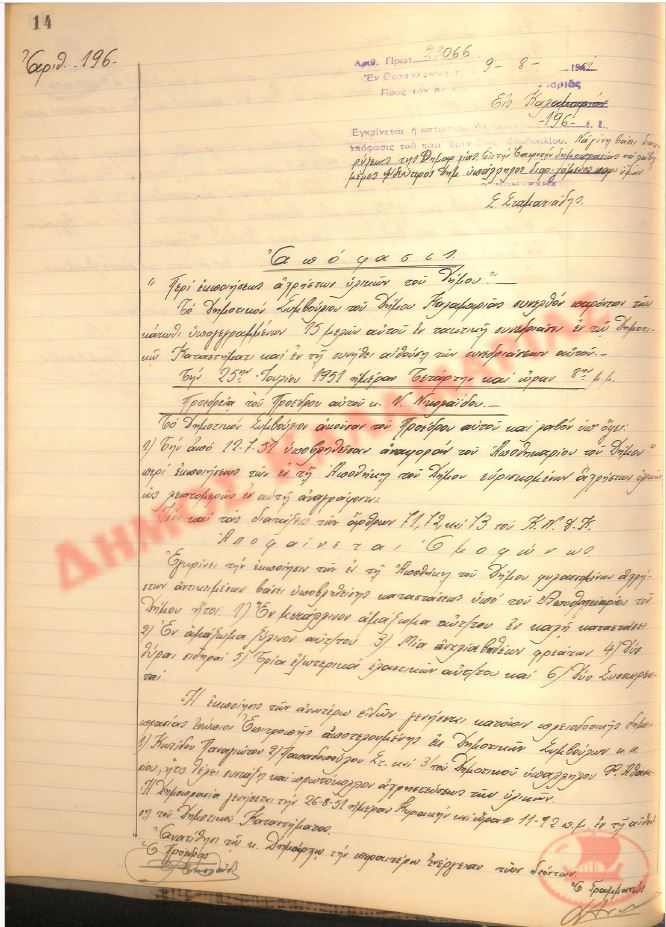 14
Ἀριθ. 196.
Αριθ. Πρωτ. 23066
Ἐν Θεσσαλονίκῃ τ 9-8- 1951
Πρὸς τὸν
Εἰς Καλαμαριάν
-196-
Ἐγκρίνεται ἡ
ἀπόφασις τοῦ παρ' Συμβουλίου. Νὰ γίνῃ
τῆς
μέρος δημ. ὑπάλληλος
Σ. Σταματιάδης
Ἀπόφασις.
"Περὶ ἐκποιήσεως ἀχρήστων ὑλικῶν τοῦ Δήμου".-
Τὸ Δημοτικὸν Συμβούλιον τοῦ Δήμου Καλαμαριᾶς συνελθὸν παρόντων τῶν
κάτωθι ὑπογεγραμμένων 15 μελῶν αὐτοῦ ἐν τακτικῇ συνεδριάσει ἐν τῷ Δημοτι-
κῷ Καταστήματι καὶ ἐν τῇ συνήθει αἰθούσῃ τῶν συνεδριάσεων αὐτοῦ.-
Τὴν 25ην Ἰουλίου 1951 ἡμέραν Τετάρτην καὶ ὥραν 8ην μ.μ.
Προεδρείᾳ τοῦ Προέδρου αὐτοῦ κ. Ν.
Τὸ Δημοτικὸν Συμβούλιον ἀκοῦσαν τοῦ Προέδρου αὐτοῦ καὶ λαβὸν ὑπ' ὄψει:
1) Τὴν ἀπὸ 12-7-51 ὑποβληθεῖσαν ἀναφορὰν τοῦ Ἀποθηκαρίου τοῦ Δήμου
περὶ ἐκποιήσεως τῶν ἐν τῇ Ἀποθήκῃ τοῦ Δήμου εὑρισκομένων ἀχρήστων ὑλικῶν
ὡς λεπτομερῶς ἐν αὐτῇ ἀναγράφονται.
καὶ τὰς διατάξεις τῶν ἄρθρων 71, 72 καὶ 73 τοῦ Κ.Ν.Δ.Κ.
Ἀποφαίνεται Ὁμοφώνως
Ἐγκρίνει τὴν ἐκποίησιν τῶν ἐν τῇ Ἀποθήκῃ τοῦ Δήμου φυλασσομένων ἀχρή-
στων ἀντικειμένων βάσει ὑποβληθείσης καταστάσεως ὑπὸ τοῦ Ἀποθηκαρίου τοῦ
Δήμου ἤτοι: 1) Ἓν μετάλλινον ἀμάξωμα αὐτ/του ἐν καλῇ καταστάσει
2) Ἓν ἀμάξωμα ξύλινον αὐτ/του 3) Μία ἀντλία βαθέων φρεάτων 4) Δύο
θύραι σιδηραῖ 5) Τρία ἐξωτερικὰ ἐλαστικῶν αὐτ/του καὶ 6) Δύο Συσσωρευ-
ταί.
Ἡ ἐκποίησις τῶν ἀνωτέρω εἰδῶν γενήσεται κατόπιν πλειοδοτικῆς δημο-
πρασίας ἐνώπιον Ἐπιτροπῆς ἀποτελουμένης ἐκ Δημοτικῶν Συμβούλων κ.κ.
1) Κωτίδου Παναγιώτου 2) Παπαδοπούλου Στ. καὶ 3) τοῦ Δημοτικοῦ ὑπαλλήλου Φ. Ἀθανα-
σίου, ἥτις θέλει συντάξῃ καὶ πρωτόκολλον ἀχρηστεύσεως τῶν ὑλικῶν.
Ἡ Δημοπρασία γενήσεται τὴν 26-8-51 ἡμέραν Κυριακὴν καὶ ὥραν 11-12 π.μ. ἐν τῇ αἰθού-
σῃ τοῦ Δημοτικοῦ Καταστήματος.
Ἀνατίθησι τῷ κ. Δημάρχῳ τὴν περαιτέρω ἐνέργειαν τῶν δεόντων.
Ὁ Πρόεδρος
Ὁ Γραμματεὺς
ΔΗΜΟΣ ΚΑΛΑΜΑΡΙΑΣ